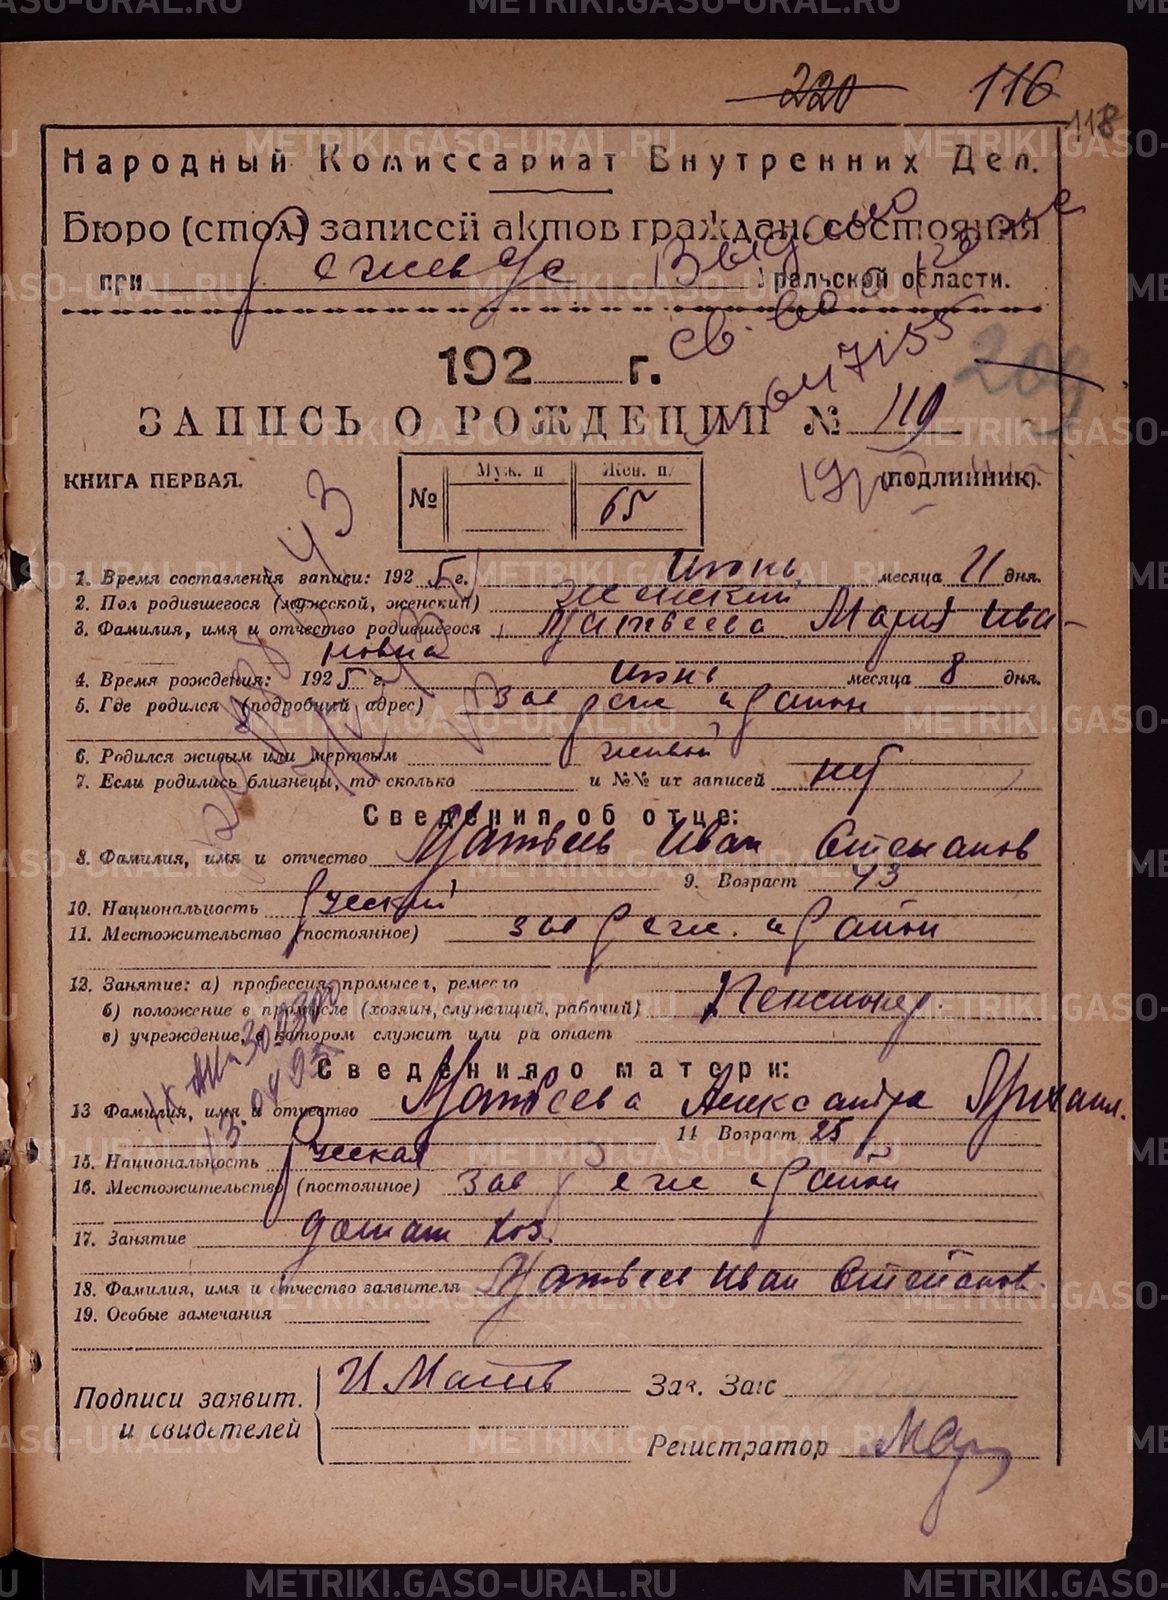 220 116
118
Народный Комиссариат Внутренних Дел.
Бюро (стол) записей актов граждан. состояния
при Режевск Уральской области.
Выдано
св. во
047155
192 г.
209
ЗАПИСЬ О РОЖДЕНИИ № 119
КНИГА ПЕРВАЯ. (подлинник).
№ Муж. п Жен. п.
65
1. Время составления записи: 1925 г. июнь месяца 11 дня.
2. Пол родившегося (мужской, женский) женский
3. Фамилия, имя и отчество родившегося Матвеева Мария Ива-
новна
4. Время рождения: 1925 г. июнь месяца 8 дня.
5. Где родился (подробный адрес) зав Реж и район
6. Родился живым или мертвым живой
7. Если родились близнецы, то сколько и №№ их записей нет
Сведения об отце:
8. Фамилия, имя и отчество Матвеев Иван Степанов
9. Возраст 43
10. Национальность Русский
11. Местожительство (постоянное) зав Реж. и район
12. Занятие: а) профессия, промысел, ремесло
б) положение в промысле (хозяин, служащий, рабочий) Пенсионер.
в) учреждение, в котором служит или работает
Сведения о матери:
13 Фамилия, имя и отчество Матвеева Александра Михаил.
14 Возраст 25
15. Национальность Русская
16. Местожительство (постоянное) зав Реж и район
17. Занятие домаш хоз.
18. Фамилия, имя и отчество заявителя Матвеев Иван Степанов.
19. Особые замечания
Подписи заявит.
и свидетелей
И Матв
Зав. Загс
Регистратор
METRIKI.GASO-URAL.RU